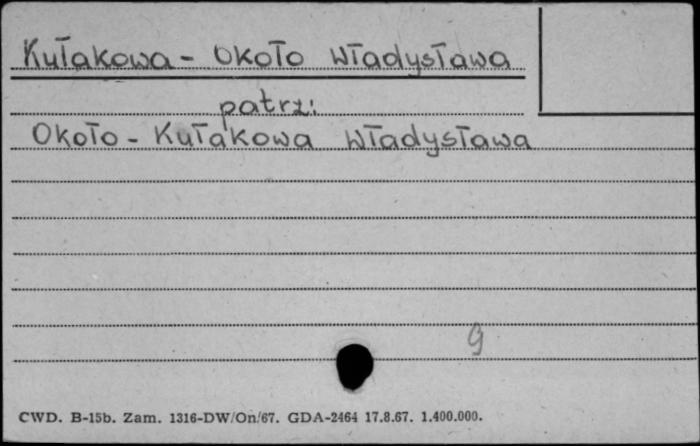 Kułakowa - Około Władysława
patrz:
Około - Kułakowa Władysława
9
CWD. B-15b. Zam. 1316-DW/On/67. GDA-2464 17.8.67. 1.400.000.